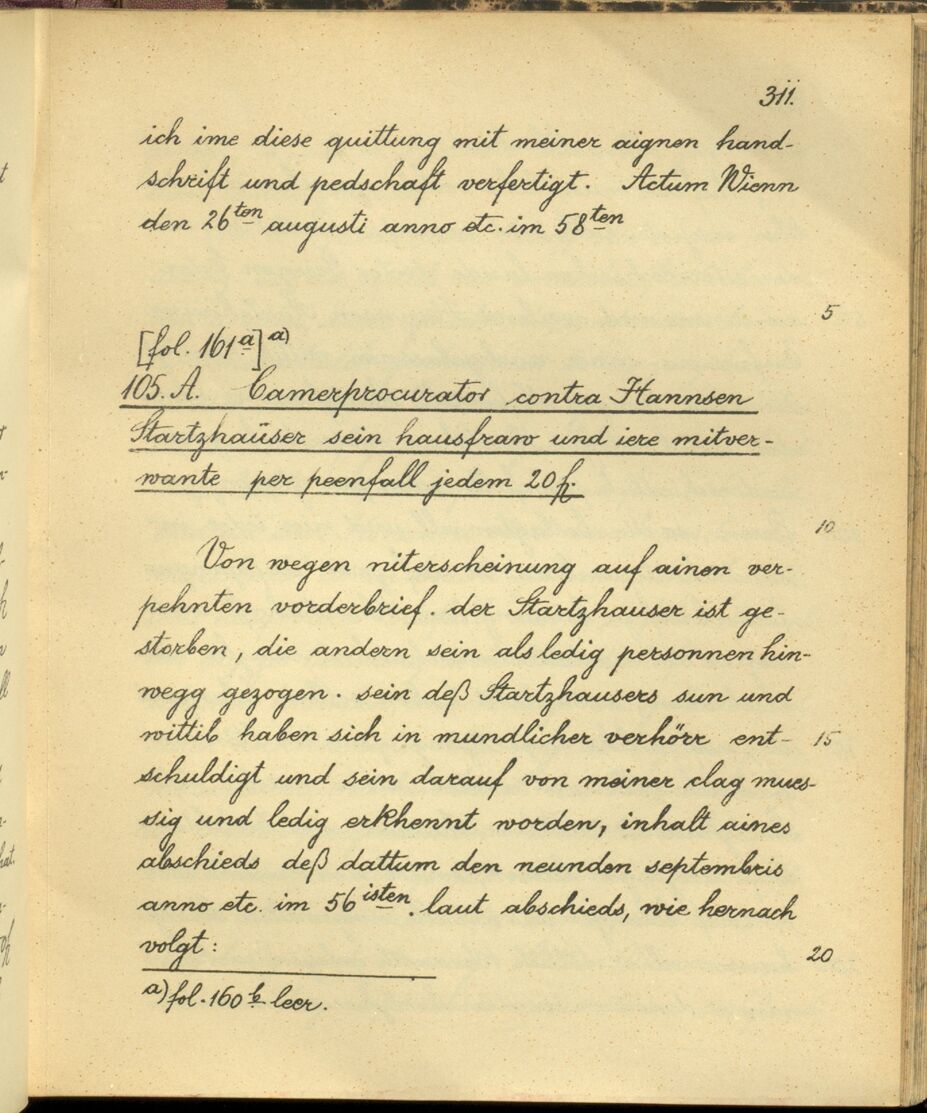 311.
ich ime diese quittung mit meiner aignen hand-
schrift und pedschaft verfertigt. Actum Wienn
den 26ten augusti anno etc. im 58ten
5
[fol. 161a] a)
105. A. Camerprocurator contra Hannsen
Startzhaüser sein hausfraw und iere mitver-
wante per peenfall jedem 20 fl.
10
Von wegen niterscheinung auf ainen ver-
pehnten vorderbrief. der Startzhauser ist ge-
storben, die andern sein als ledig personnen hin-
wegg gezogen. sein deß Startzhausers sun und
wittib haben sich in mundlicher verhörr ent- 15
schuldigt und sein darauf von meiner clag mues-
sig und ledig erkhennt worden, inhalt aines
abschieds deß dattum den neunden septembris
anno etc. im 56isten. laut abschieds, wie hernach
volgt: 20
a) fol. 160 b leer.